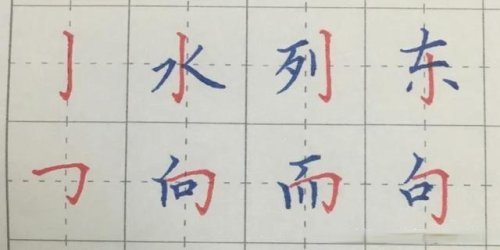 亅水列东
𠃌向而句